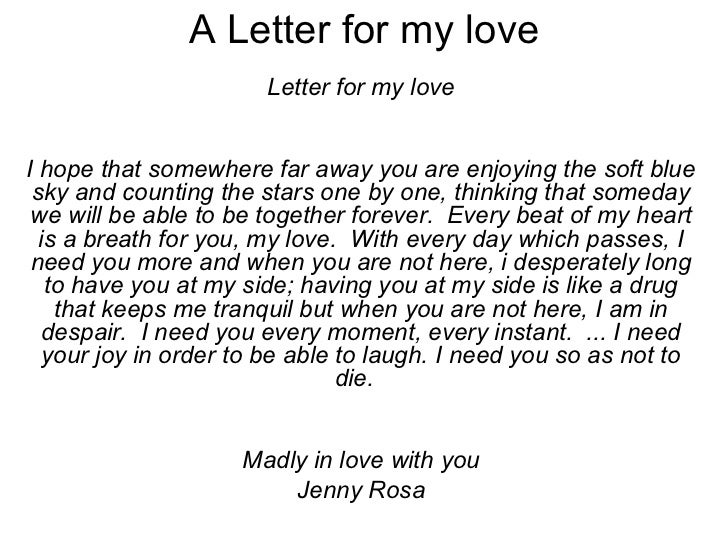 A Letter for my love
Letter for my love
I hope that somewhere far away you are enjoying the soft blue
sky and counting the stars one by one, thinking that someday
we will be able to be together forever.  Every beat of my heart
is a breath for you, my love.  With every day which passes, I
need you more and when you are not here, i desperately long
to have you at my side; having you at my side is like a drug
that keeps me tranquil but when you are not here, I am in
despair.  I need you every moment, every instant.  ... I need
your joy in order to be able to laugh. I need you so as not to
die.
Madly in love with you
Jenny Rosa